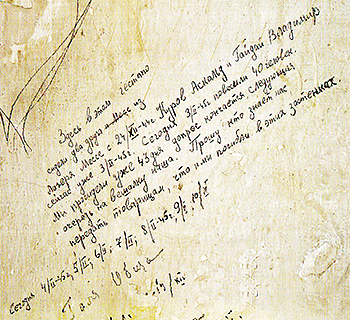 Здесь в этом гестапо
сидели два друга Месс из
лагеря Мессе с 24/XII-44г. Куров Асколд и Гайдай Владимир
сейчас уже 3/II-45г. Сегодня 3/II-45г. повесили 40 человек.
Мы просидели уже 43 дня допрос кончается следующая
очередь на вешалку наша. Прошу кто знает нас
передать товарищам, что и мы погибли в этих застенках.
Сегодня 4/II-45г, 5/II, 6/II, 7/II, 8/II-45г, 9/II 10/II
Гайдай